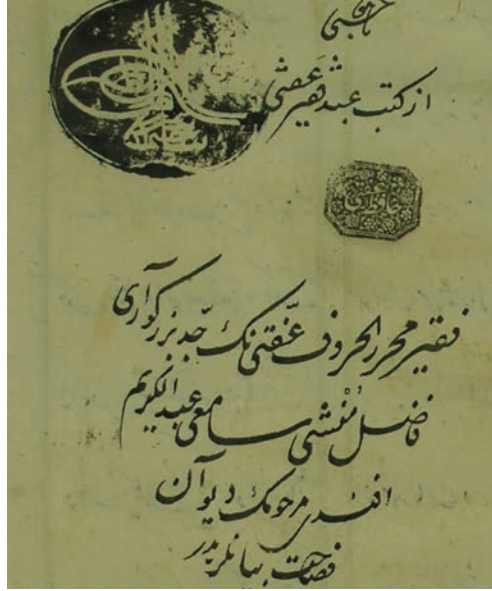 از كتب عبد شهير عفتى
فقير محرر الحروف عفّتى نك جدّ بزركوارى
فاضل مُنشى سامعى عبد الكريم
افندى مرحومك ديوان
فصاحت بيانلريدر